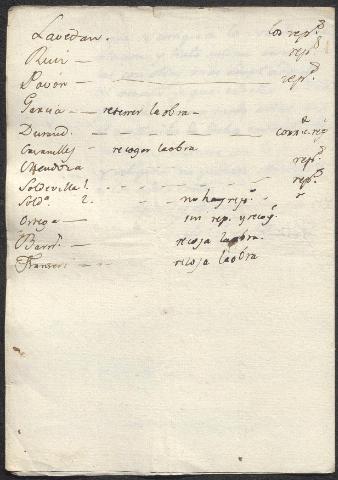 Lavedan. los rep.s
Ruiz — rep.s
Pavón — rep.s
Garcia — retener la obra —
Durand. — — —
Cavanilles — recoger la obra
Mendoza rep.s
Soldevilla 1. rep.s
Sold.a 2. no hay rep.o
Ortega — sin rep. y recog.
Barr.l — recoja la obra.
recoja la obra